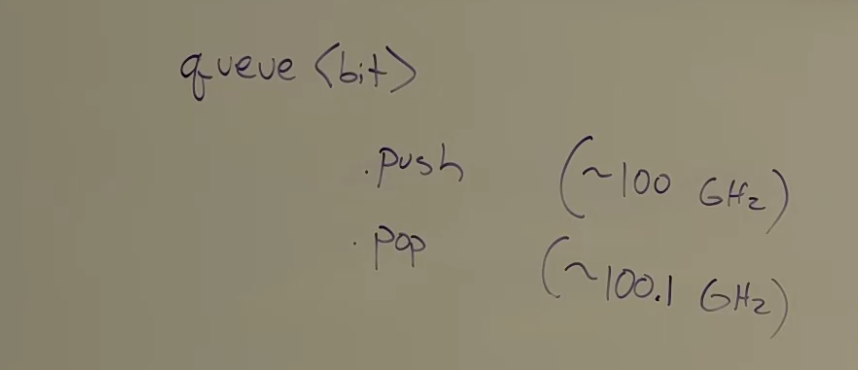 queue <bit>
.push (~100 GHz)
.pop (~100.1 GHz)